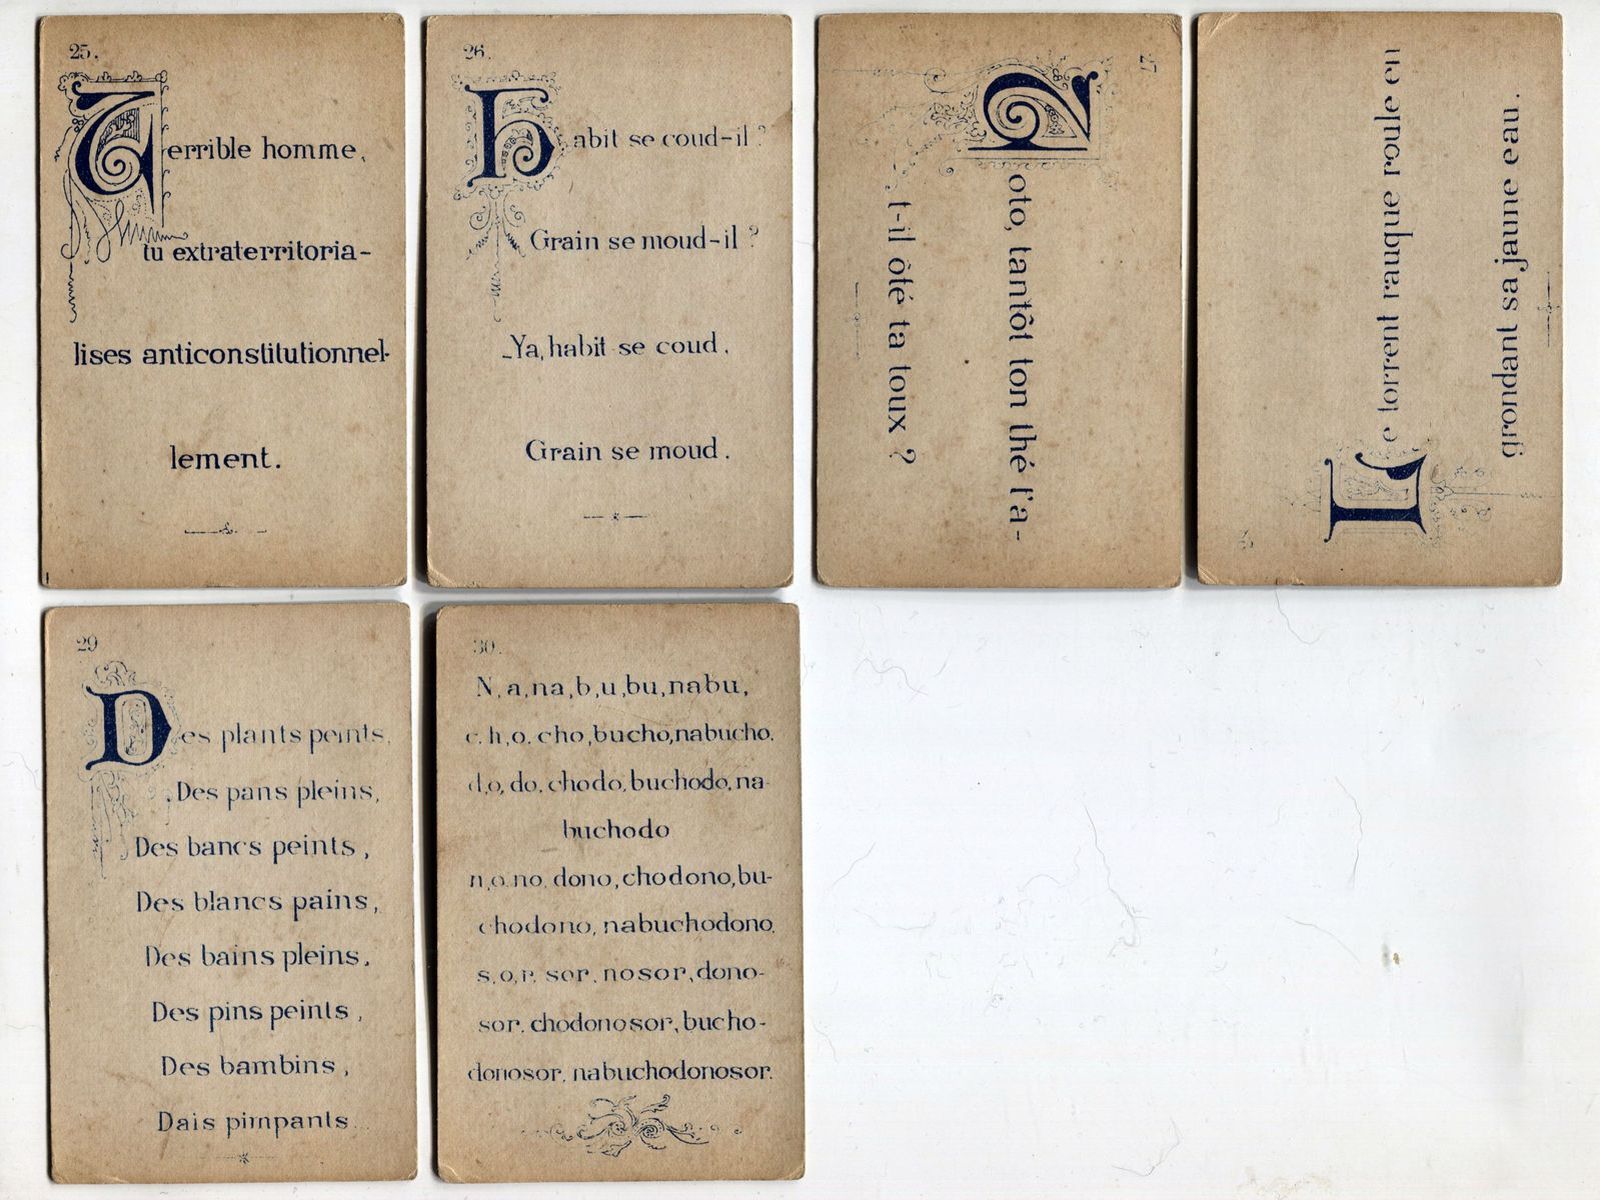 25.
Terrible homme,
tu extraterritoria-
lises anticonstitutionnel-
lement.
26.
Habit se coud-il ?
Grain se moud-il ?
_Ya, habit se coud.
Grain se moud.
27
Toto, tantôt ton thé t'a-
t-il ôté ta toux ?
Le torrent rauque roule en
grondant sa jaune eau.
29
Des plants peints,
Des pans pleins,
Des bancs peints,
Des blancs pains,
Des bains pleins,
Des pins peints,
Des bambins,
Dais pimpants
30.
N, a, na, b, u, bu, nabu,
c. h, o. cho, bucho, nabucho.
d, o, do, chodo, buchodo, na-
buchodo
n, o, no, dono, chodono, bu-
chodono, nabuchodono,
s, o, r, sor, nosor, dono-
sor, chodonosor, bucho-
donosor, nabuchodonosor.